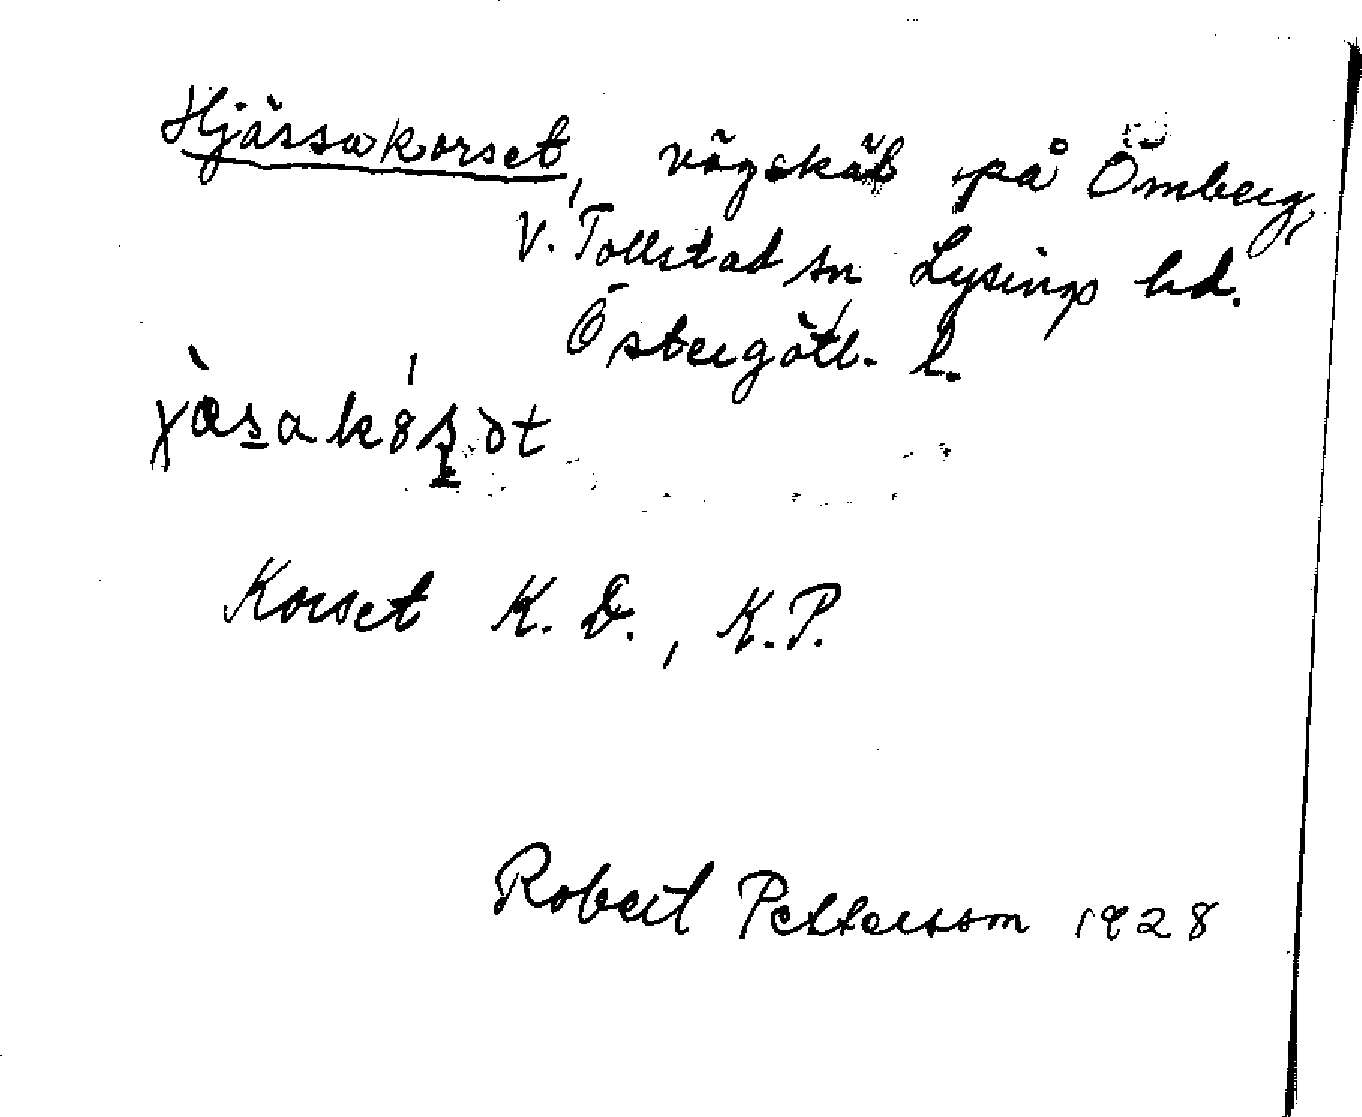 Hjässakorset, vägskäl på Omberg,
V. Tollstad sn Lysings hd.
Östergötl. l.
Korset K. D., K. P.
Robert Pettersson 1928